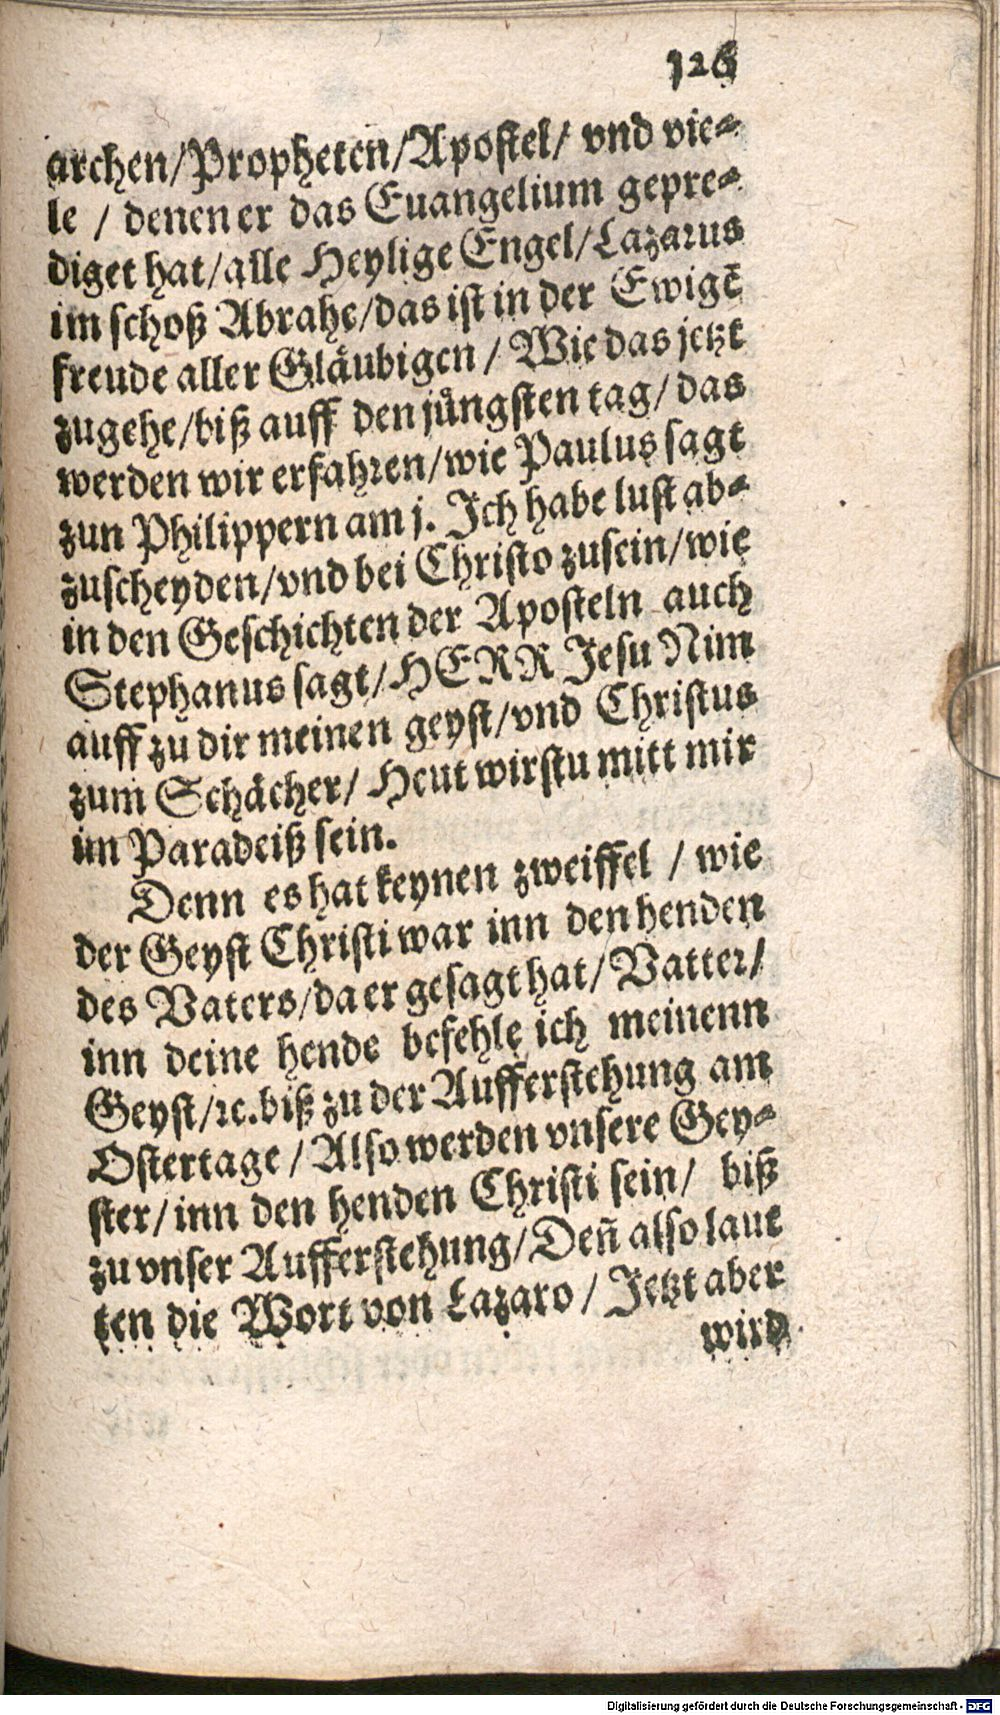 126
archen/Propheten/Apostel/ vnd vie⸗
le / denen er das Euangelium gepre⸗
diget hat/alle Heylige Engel/Lazarus
im schoß Abrahe/das ist in der Ewigē
freude aller Gläubigen / Wie das jetzt
zugehe/biß auff den jüngsten tag/ das
werden wir erfahren/wie Paulus sagt
zun Philippern am j. Ich habe lust ab⸗
zuscheyden/vnd bei Christo zusein/wie
in den Geschichten der Aposteln auch
Stephanus sagt/HERR Jesu Nim
auff zu dir meinen geyst/vnd Christus
zum Schächer/ Heut wirstu mitt mir
im Paradeiß sein.
Denn es hat keynen zweiffel / wie
der Geyst Christi war inn den henden
des Vaters/da er gesagt hat/ Vatter/
inn deine hende befehle ich meinenn
Geyst/ꝛc. biß zu der Aufferstehung am
Ostertage / Also werden vnsere Gey⸗
ster/inn den henden Christi sein/ biß
zu vnser Aufferstehung/Deñ also laut
ten die Wort von Lazaro / Jetzt aber
wird
Digitalisierung gefördert durch die Deutsche Forschungsgemeinschaft - DFG